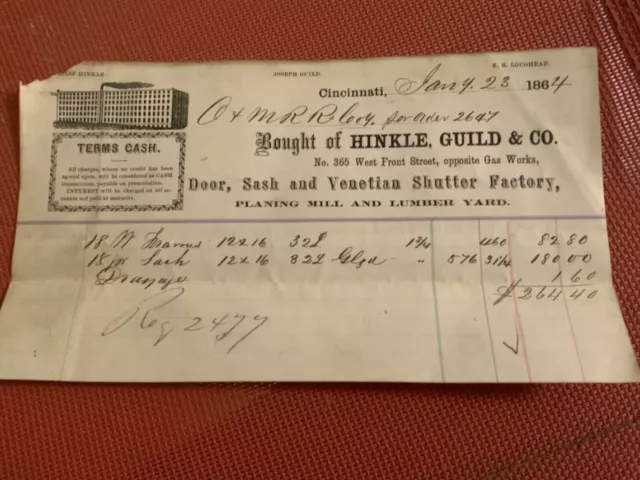 HINKLE
JOSEPH GUILD.
E. R. LOUGHEAD.
Cincinnati, Jany. 23 1864
O & M R R Coy. per order 2647
Bought of HINKLE, GUILD & CO.
No. 365 West Front Street, opposite Gas Works,
Door, Sash and Venetian Shutter Factory,
PLANING MILL AND LUMBER YARD.
TERMS CASH.
All charges, where no credit has been
agreed upon, will be considered as CASH
transactions, payable on presentation.
INTEREST will be charged on all ac-
counts not paid at maturity.
18 W Frames 12x16 32L 1 3/4 460 82 80
18 pr Sash 12x16 32L Glzd " 576 31 1/4 180 00
Drayage 1 60
$264 40
Reg 2477